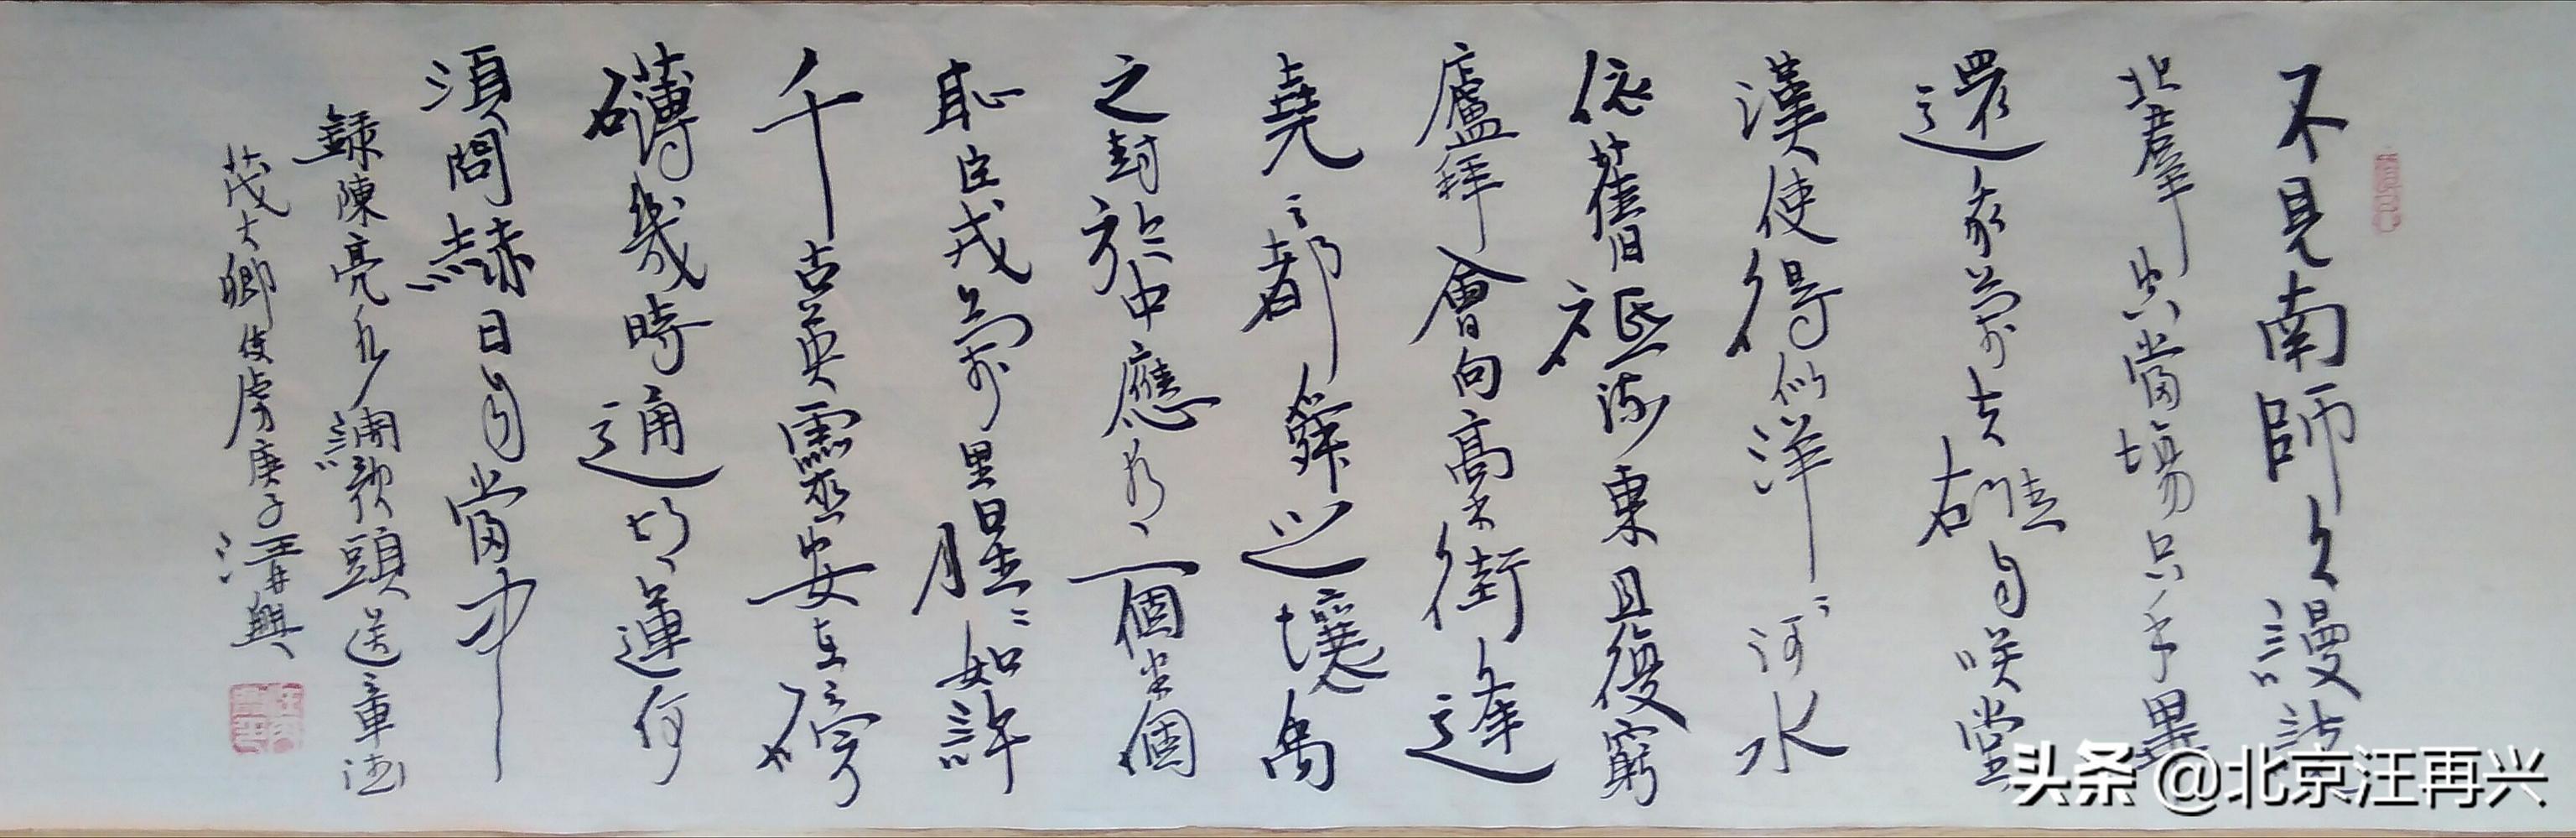 不見南師久謾說
北羣空當場只手畢
還我萬夫雄自咲堂
漢使得似洋〻河水
依舊祗流東且復窮
廬拜會向槀街逢
堯之都舜之壤禹
之封於中應有一個半個
恥臣戎萬里腥〻如許
千古英靈安在磅
礴幾時通胡運何
須問赫日自當中
錄陳亮水調歌頭送章德
茂大卿使虜庚子溝興
头条 @北京汪再兴